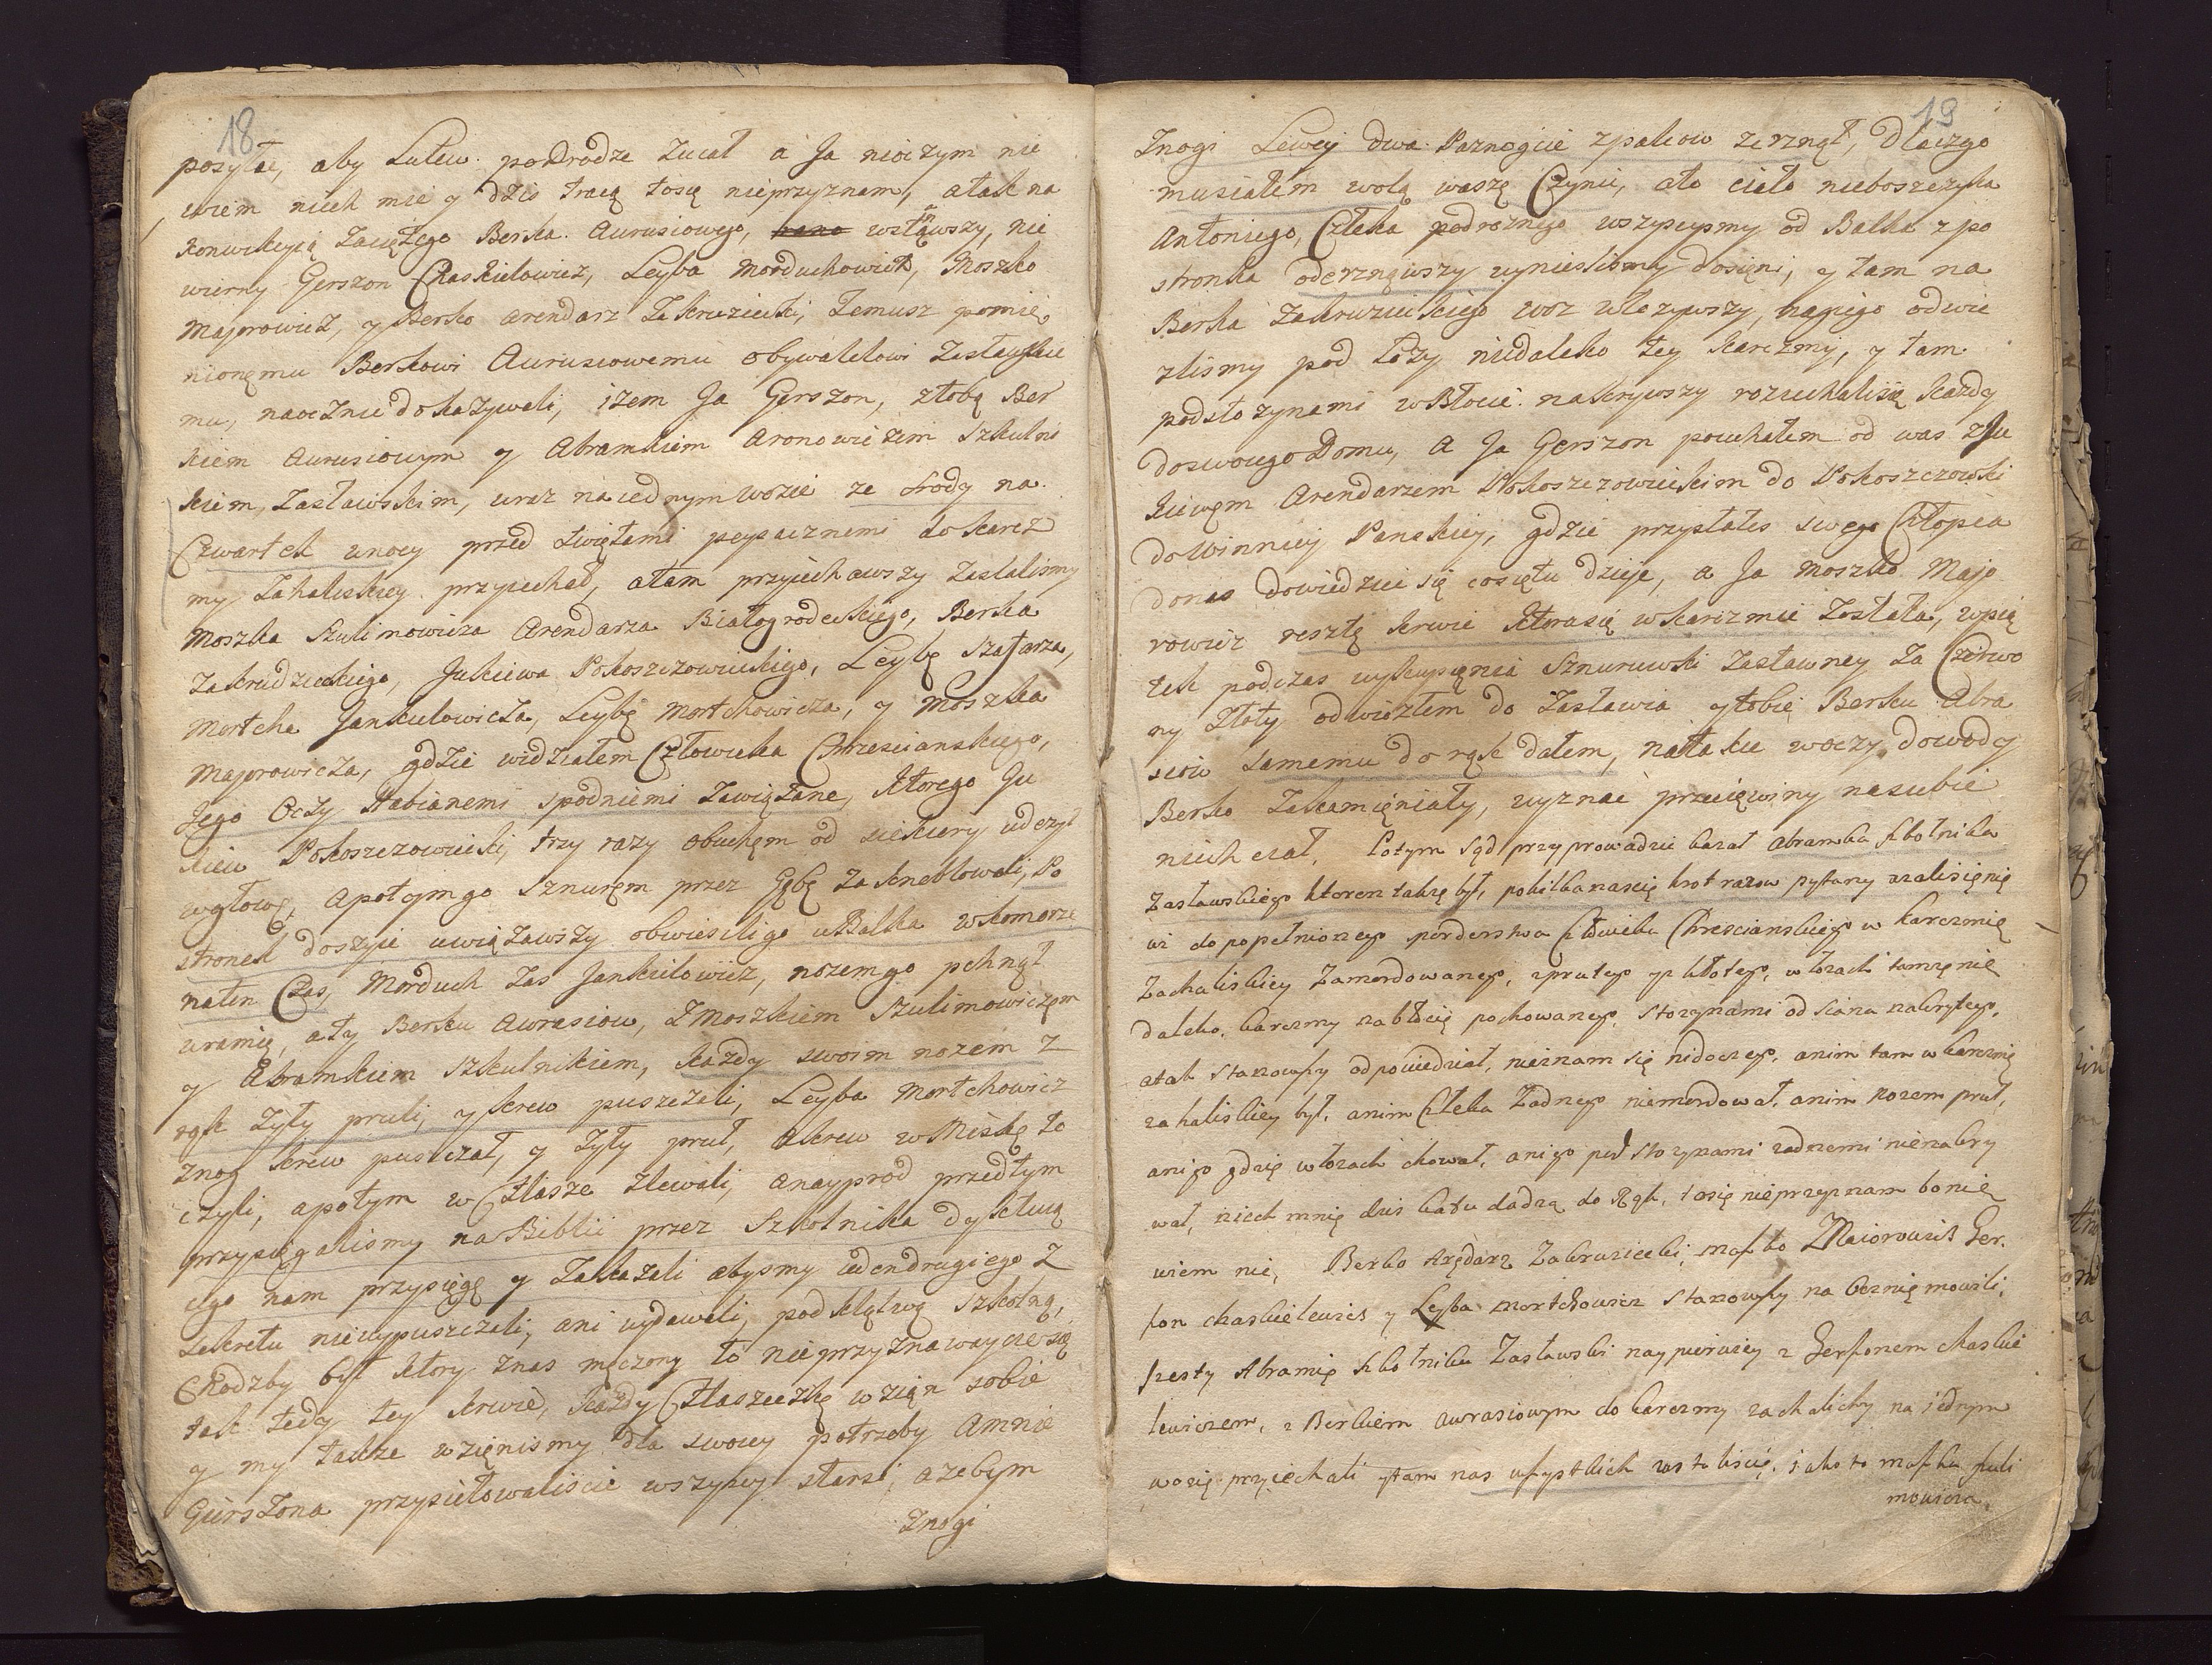 18
posyłac, aby Lutew. podrodze zucał a Ja nioczym nie
wiem niech mie y dzis tracą tosię nieprzyznam, atak na
konwikcyią zaciętego Berka. Aurusiowego, wstąnwszy, nie
wierny Gerszon Chaskielowicz, Leyba Morduchowicz, Moszko
Majorowicz, y Berko arendarz Zakruziecki, temusz pomie
nionęmu Berkowi Aurusiowemu obywatelowi Zasławskie
mu, naocznie dokazywali, izem Ja Gerszon, ztobą Ber
kiem Aurusiowym y Abramkiem Aronowiczim Szkulni
kiem, Zasławskim, wraz na iednym wozie ze srody na
Czwartek wnocy przed swiętami peysacznemi do karcz
my Zahaliskiey przyiechał, atam przyiechawszy zastalismy
Moszka Szulimowicza Arendarza Białogrodeckiego, Berka
Zakrudzieckiego, Jukiewa Pokoszczowieckiego, Leybę Szafarza,
Mortcha Jankielowicza, Leybę Mortchowicza, y Moszka
Majorowicza, gdzie widziałem Człowieka Chrescianskiego,
Jego Oczy Habianemi spodniemi zawiązane, którego Ju
kiew Pokoszczowiecki, trzy razy obuchęm od siekiery udezył
wgłowę, apotymgo sznuręm przez Gębę zakneblowali, Po
stronek doszyie uwiązawszy obwiesiligo uBalka wkomorze
naten Czas, Morduch zas Jankielowicz, nozemgo pchnął
wramię, aty Berku Awrasiow, zMoszkiem Szulimowiczęm
y Abramkiem Szkulnikiem, kazdy swoim nozem z
rąk zyły pruli, y krew puszczali, Leyba Mortchowicz
znog krew puszczał, y zyły pruł, akrew wMiskę to
czyli, apotym w Flasze zlewali, anayprod przedtym
przysięgalismy naBiblii przez Szkolnika dyktuią
cego nam przysięgę y zakazali abysmy iedendrugiego z
sekretu niewypuszczali, ani wydawali, pod klątwą szkolną,
Chodzby był ktory znas męczony to nieprzyznawaycie się
tak tedy tey krwie, kazdy Flaszeczkę wziąn sobie
y my takze wzięnismy dla swoiey potrzeby Amnie
Gierszona przysiełowaliscie wszyscy starsi, azebym
Znogi
19
Znogi Lewey dwa Paznogcie zpalcow zerznął, Dlaczego
musiałem wolą waszę Czynic, ato ciało nieboszczyka
Antoniego, Człeka podroznego wszyscysmy od Balka zpo
stronka oderznąwszy wynieslismy dosięni, y tam na
Berka Zakruzieckiego woz włozywszy, naniego odwie
zlismy pod Łozy niedaleko tey karczmy, y tam
podsto zynami wBłocie nakrywszy roziechalisię kazdy
doswoiego Domu, a Ja Gerszon poiechałem od was zJu
kiewęm Arendarzem Pokoszczowieckim do Pokoszczowski
doWinnicy Panskiey, gdzie przysłałes swego Chłopca
donas dowiedziec się cosiętu dzieje, a Ja Moszko Majo
rowicz resztę krwie ktorasię wkarczmie została, wpią
tek podczas wykupięnia Sznuruwski Zastawney za Czerwo
ny Złoty odwiozłem do Zasławia ytobie Berku Abra
siow samemu do rąk dałem, natakie woczy dowody
Berko zakamięniały, wyznac przecięwiny nasiebie
niechciał. Potym sąd przyprowadzic kazał Abramka szkolnika
Zasławskiego ktoren takze był, pokilkanascię krot razow pytany azalisięnie
wi do popełnionego morderstwa Człowieka Chrescianskiego w karczmię
Zachaliskiey Zamordowanego, zprutego y zkłotego, w łozach tamzę nie
daleko karczmy wbłocię pochowanego, stozynami od siana nakrytego,
atak stanowszy odpowiedział, nieznam się nidoczego, anim tam w karczmię
zahaliskiey był, anim Człeka zadnego niemordował, anim nozem pruł,
anigo gdzię włozach chował, anigo pod stozynami zadnemi nienakry
wał, niech mnię dzis katu dadzą do Rąk, tosię nieprzyznam bonie
wiem nic, Berko Arędarz Zakruziecki, Moszko Maiorowicz Ger
szon Chaskielewicz y Leyba Mortchowicz stanowszy na Ocznię mowili,
zesty Abramię szkolniku Zasławski naypierwiey z Gerszonem Chaskie
lewiczem, z Berkiem Awrasiowym do karczmy zachalichy na iednym
wozię przyiechali ytam nas wszystkich zastaliscię, iako to Moszka szuli
mowicza.